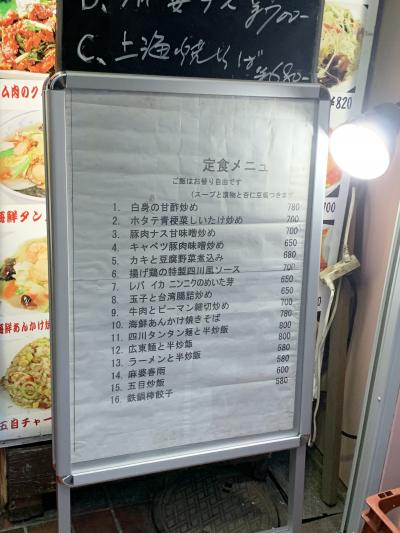 ¥700-
C、上海焼そば
¥680-
¥820
定食メニュ
ご飯はお替り自由です
(スープと漬物と杏仁豆腐つきます
1. 白身の甘酢炒め 780
2. ホタテ青梗菜しいたけ炒め 700
3. 豚肉ナス甘味噌炒め 700
4. キャベツ豚肉味噌炒め 650
5. カキと豆腐野菜煮込み 680
6. 揚げ鶏の特製四川風ソース 700
7. レバ イカ ニンニクのめいた芽 650
8. 玉子と台湾腸詰炒め 650
9. 牛肉とピーマン細切炒め 700
10. 海鮮あんかけ焼きそば 780
11. 四川タンタン麺と半炒飯 800
12. 広東麺と半炒飯 800
13. ラーメンと半炒飯 580
14. 麻婆春雨 580
15. 五目炒飯 600
16. 鉄鍋棒餃子 580
ム肉のク
海鮮タン
海鮮あんかけ焼
五目チャー